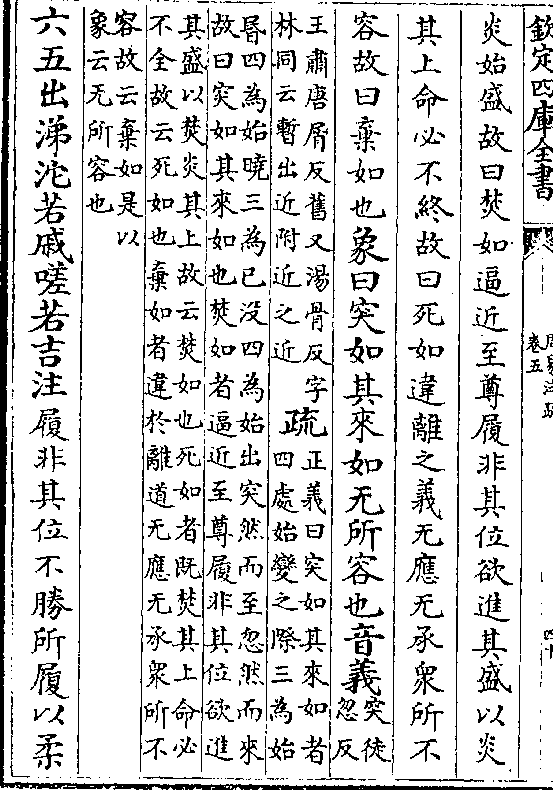 欽定四庫全書
卷五
炎始盛故曰焚如逼近至尊履非其位欲進其盛以炎
其上命必不終故曰死如違離之義无應无承衆所不
容故曰棄如也象曰突如其來如无所容也音義
突徒
忽反
王肅唐屑反舊又湯骨反字
林同云暫出近附近之近
疏
正義曰突如其來如者
四處始變之際三為始
昬四為始曉三為已没四為始出突然而至忽然而來
故曰突如其來如也焚如者逼近至尊履非其位欲進
其盛以焚炎其上故云焚如也死如者既焚其上命必
不全故云死如也棄如者違於離道无應无承衆所不
容故云棄如是以
象云无所容也
六五出涕沱若戚嗟若吉注履非其位不勝所履以柔